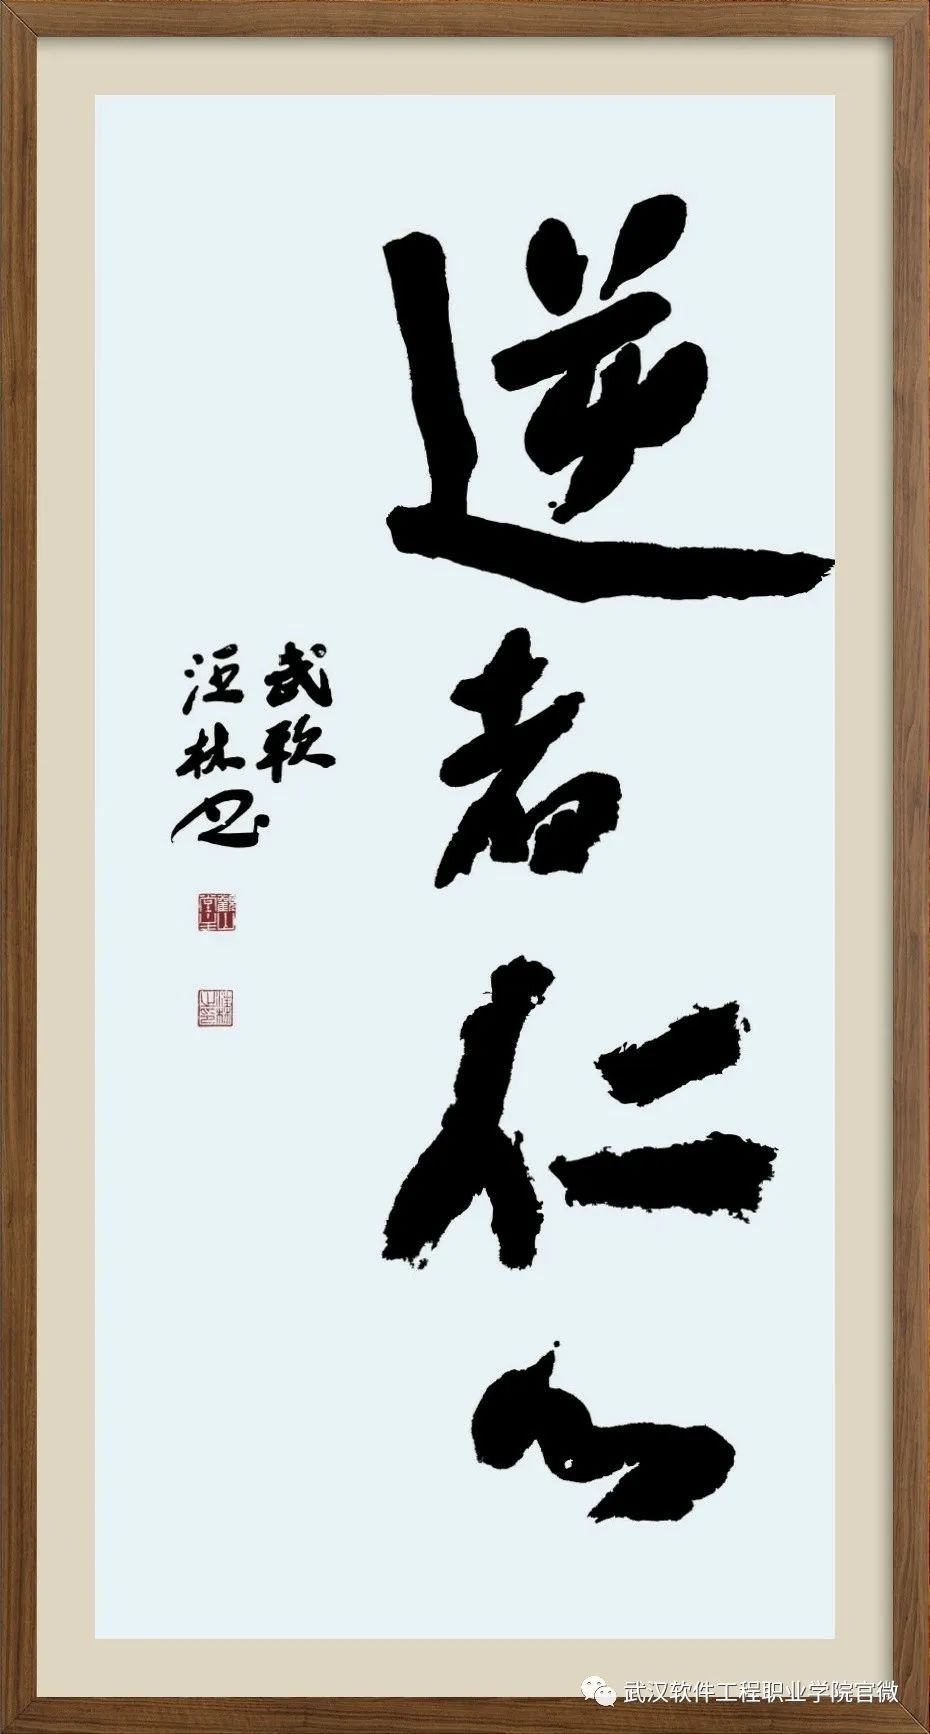 逆者仁心
武软
汪林书
武汉软件工程职业学院官微